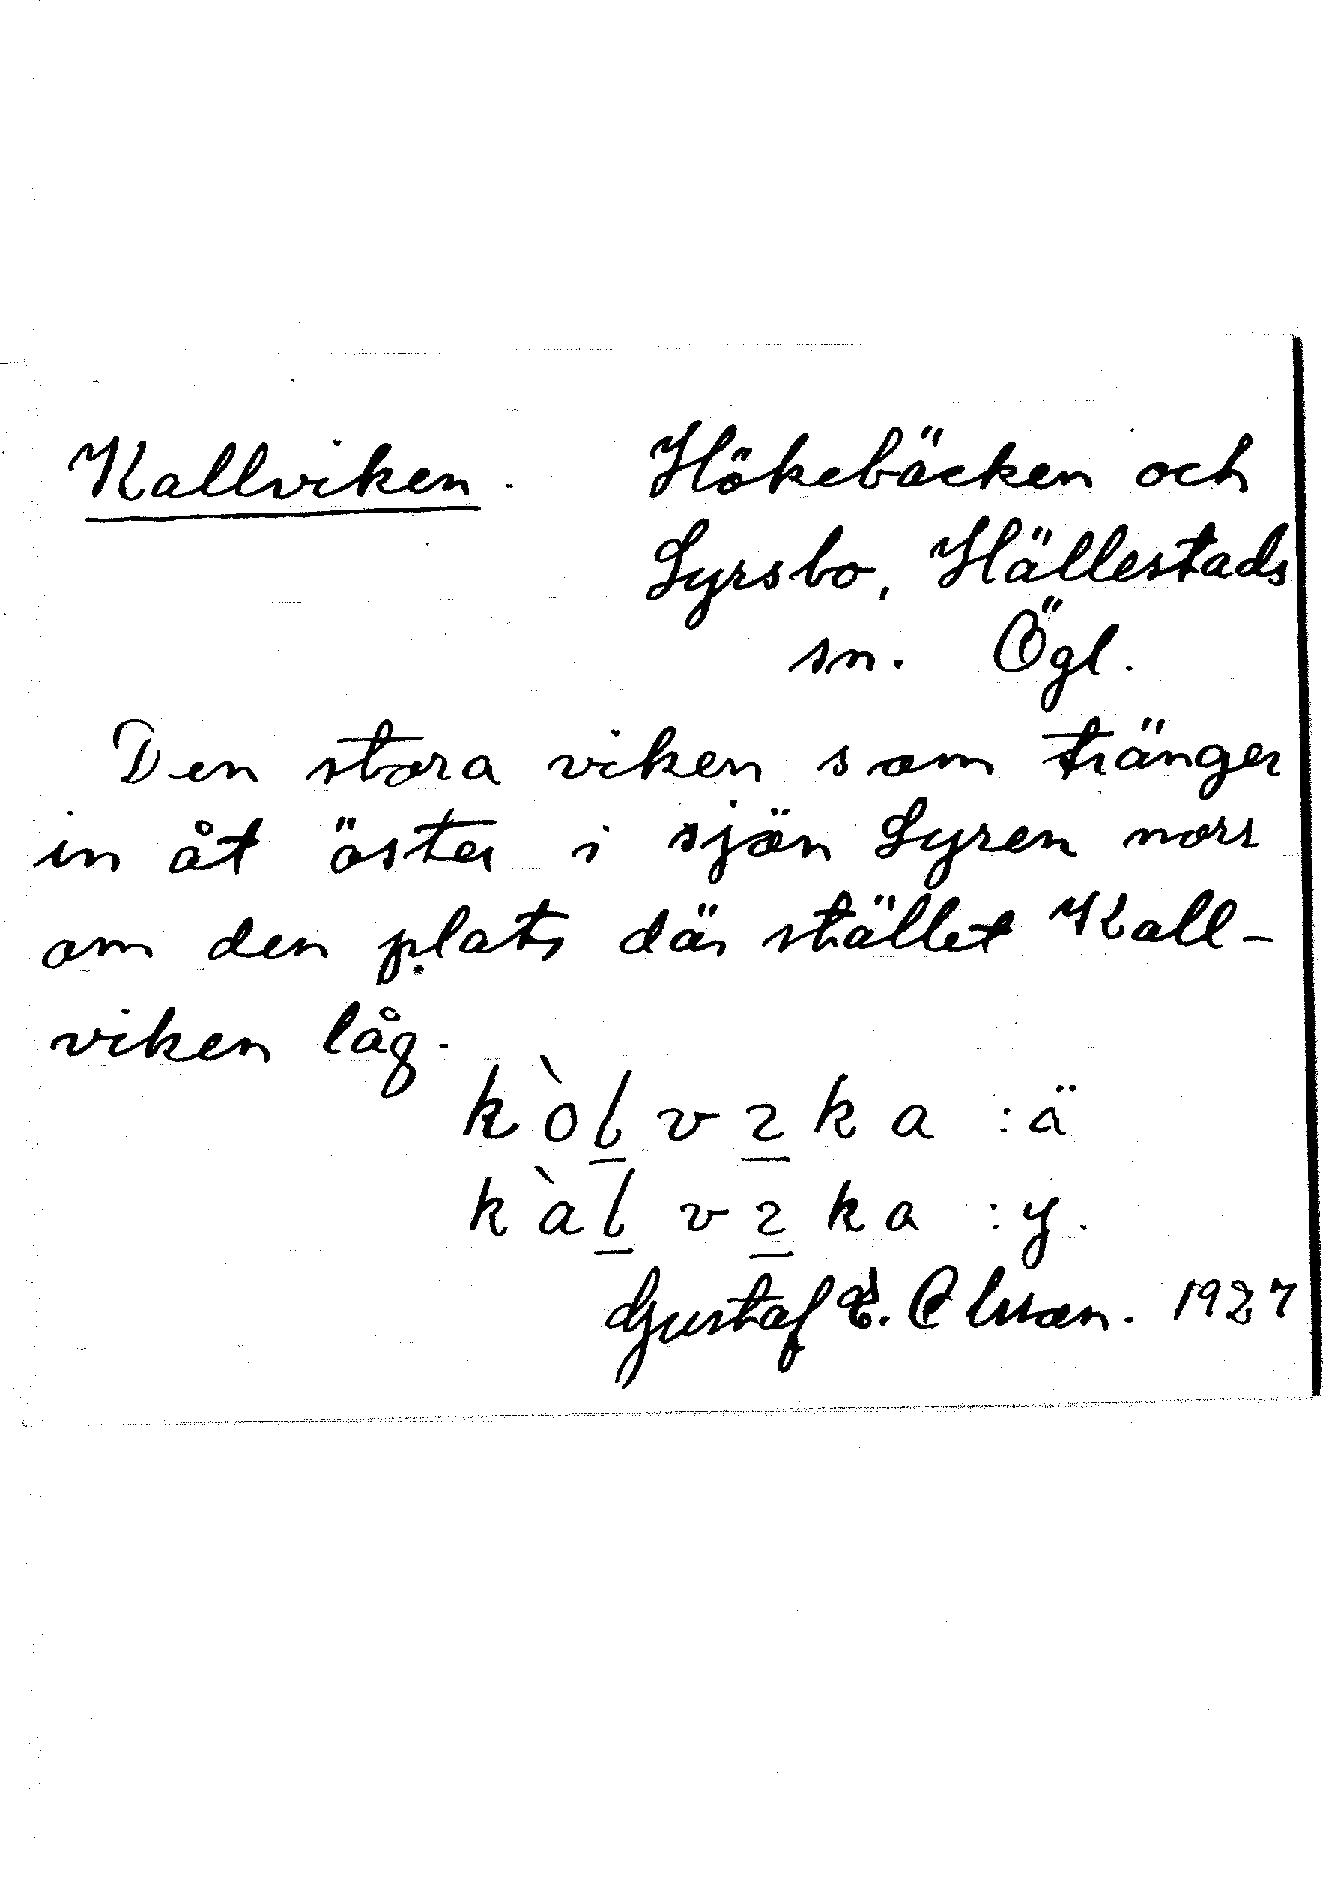 Kallviken. Hökebäcken och
Lyrsbo, Hällestads
sn. Ögl.
Den stora viken som tränger
in åt öster i sjön Lyren norr
om den plats där stället Kall-
viken låg.
kòl̲vɿ̲ka :ä
kàl̲vɿ̲ka :y.
Gustaf E. Olsson. 1927